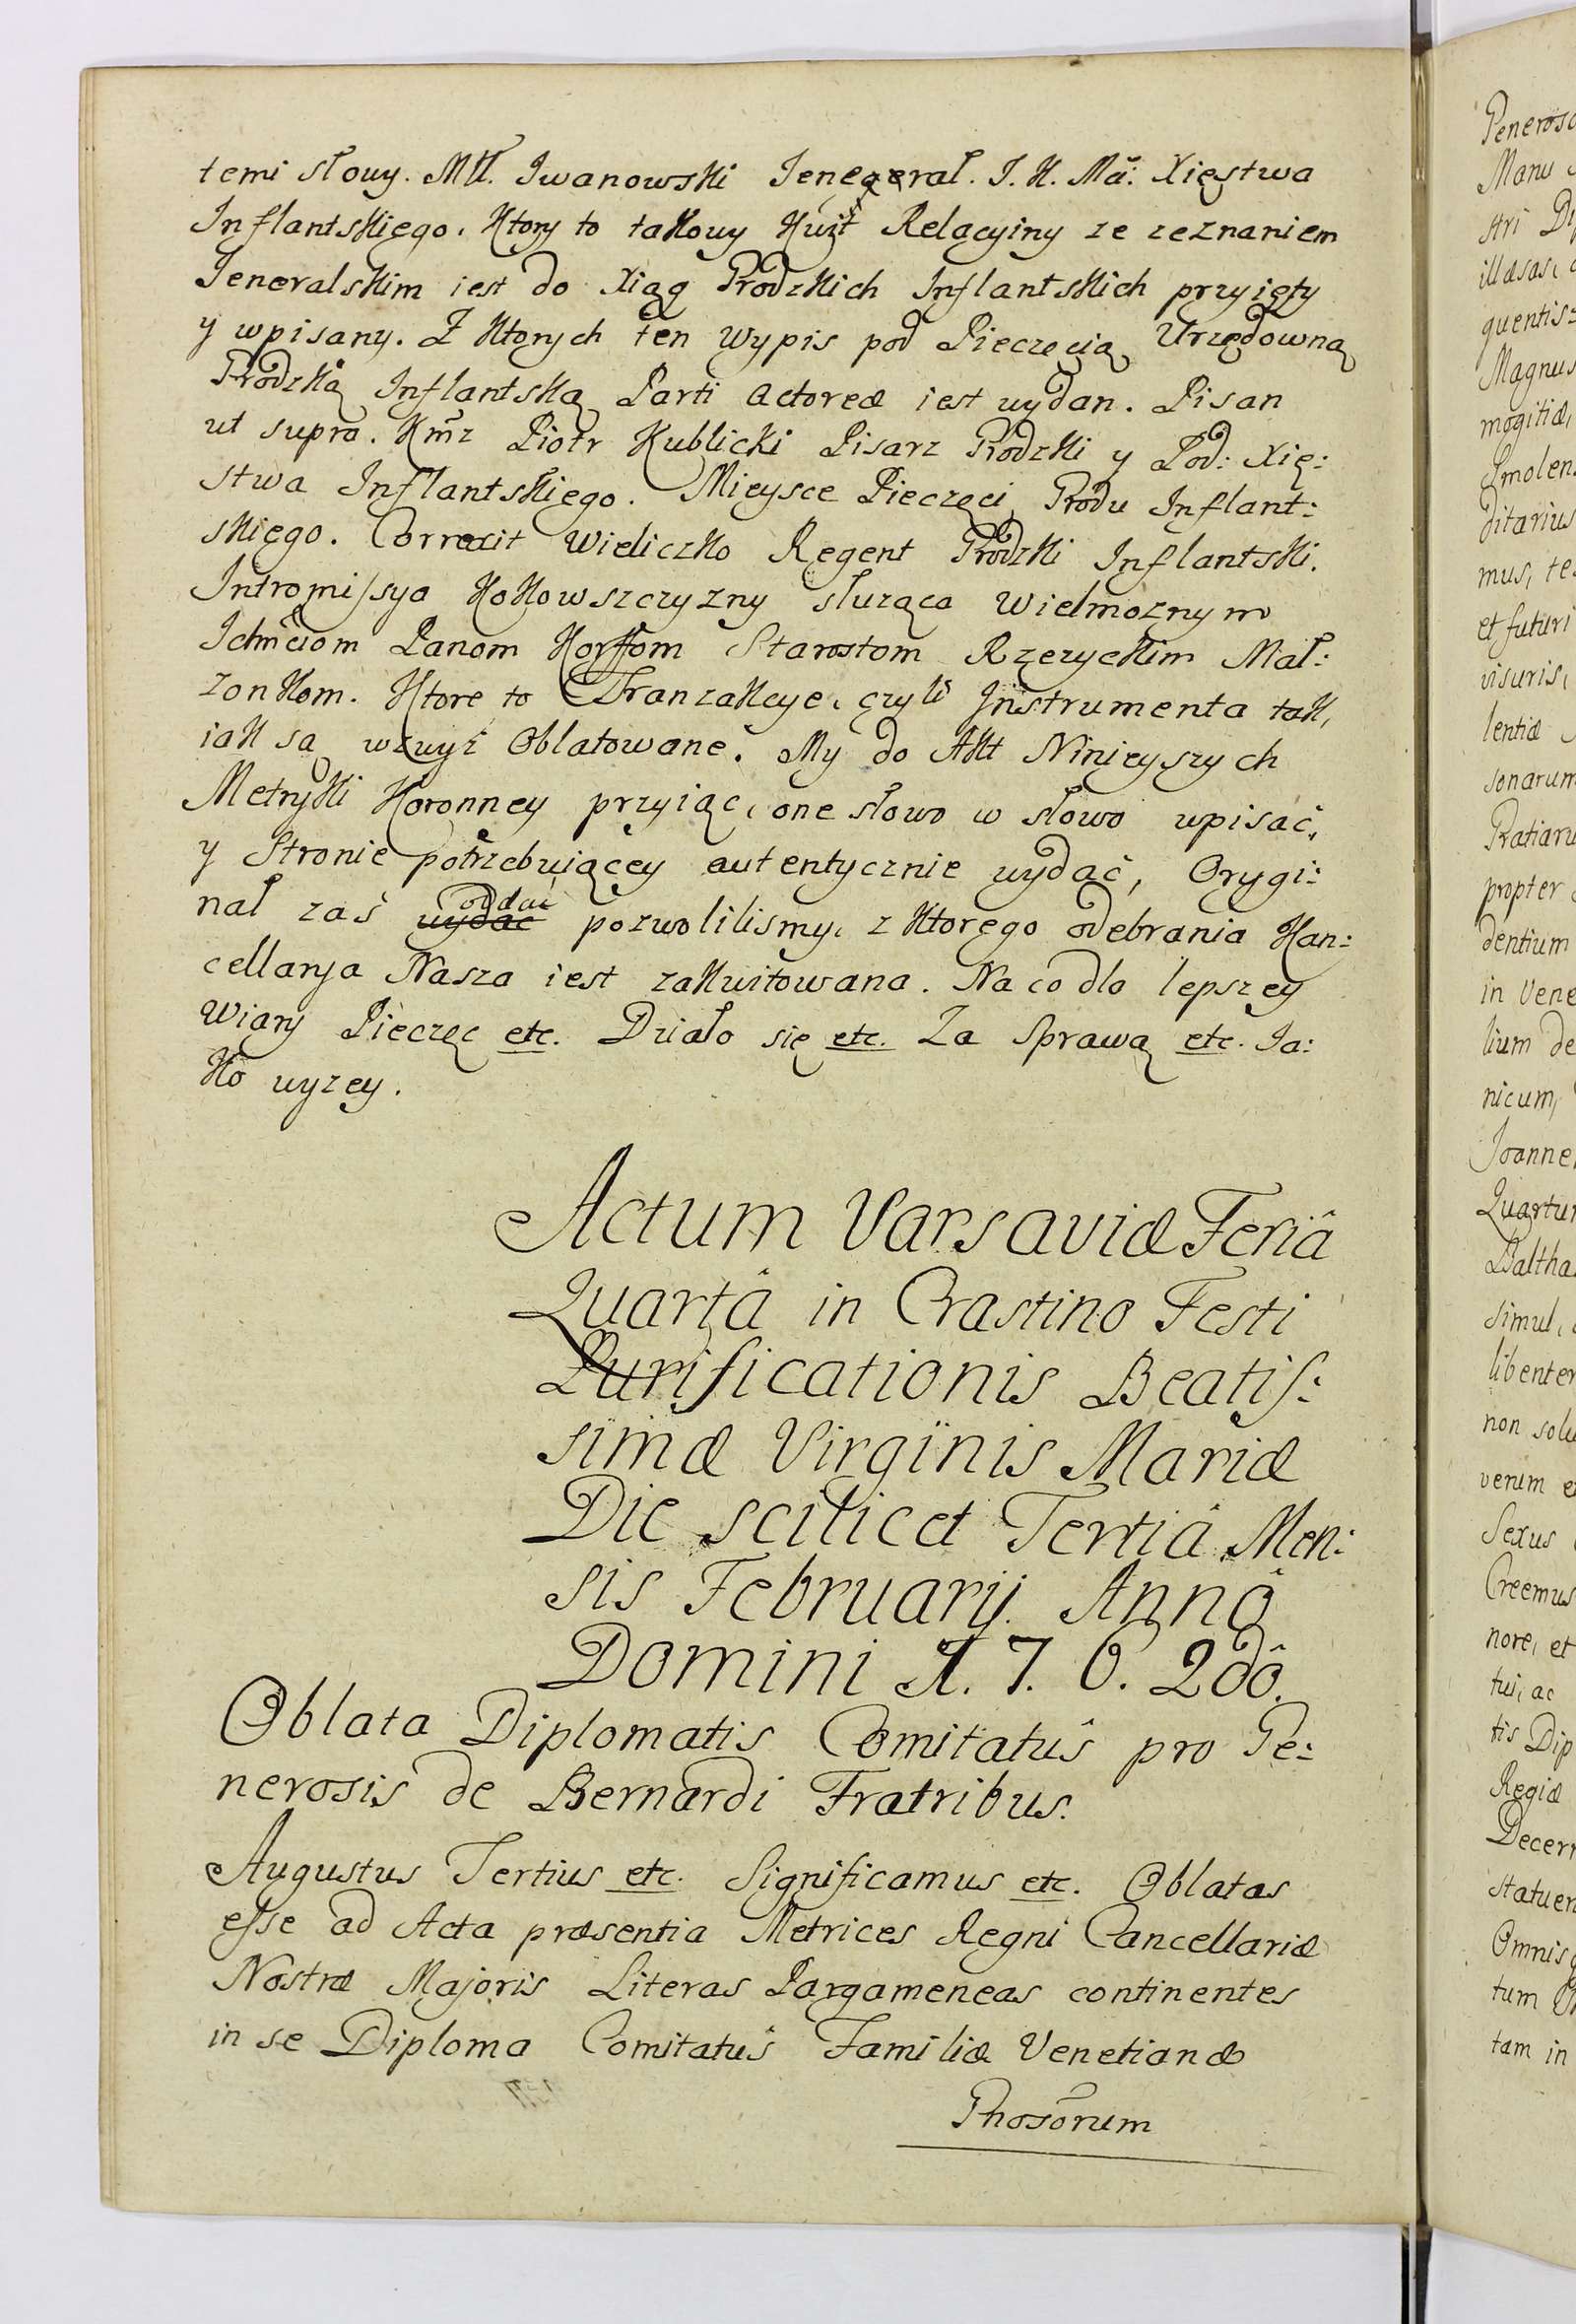 temi słowy. Mttl. Iwanowski Jenerał. J. K. Mć: Xięstwa
Inflantskiego. Ktory to takowy Kwit Relacyiny ze zeznaniem
Jeneralskim iest do Xiąg Grodzkich Inflantskich przyięty
y wpisany. Z Ktorych ten Wypis pod Pieczęcią Urzędowną
Grodzką Inflantską Parti Actoreæ iest wydan. Pisan
ut supra. Kmrz Piotr Kublicki Pisarz Grodzki y Pod: Xię:
stwa Inflantskiego. Mieysce Pieczęci Grodu Inflant:
skiego. Correxit Wieliczko Regent Grodzki Inflantski.
Intromissya Kokowszczyzny służąca Wielmoznym
Ichmciom Panom Korffom Starostom Rzeżyckim Mał:
zonkom. Ktore to Tranzakcye, czyli Instrumenta tak,
iak są wzwyż Oblatowane. My do Akt Ninieyszych
Metryki Koronney przyiąc, one słowo w słowo wpisać,
y Stronie potrzebuiącey autentycznie wydać, Orygi:
nał zaś wydać oddać pozwolilismy, z Ktorego odebrania Kan:
cellarya Nasza iest zakwitowana. Na co dla lepszey
Wiary Pieczęc etc. Działo się etc. Za Sprawą etc. Ja:
ko wyzey.
Actum Varsaviæ Feriâ
Quartâ in Crastino Festi
Purificationis Beatis:
simæ Virginis Mariæ
Die scilicet Tertiâ Men:
sis Februarij Annô
Domini M. 7. 6. 2dô.
Oblata Diplomatis Comitatûs pro Ge:
nerosis de Bernardi Fratribus.
Augustus Tertius etc. Significamus etc. Oblatas
esse ad Acta præsentia Metrices Regni Cancellariæ
Nostræ Majoris Literas Pargameneas continentes
in se Diploma Comitatûs Familiæ Venetianæ
Gnosorum
Generoso
Manu
stri
illæsas,
quentis:
Magnus
mogitiæ,
Smolen:
ditarius
mus,
et futuri
visuris,
lentiæ
sonarum
Gratiaru
propter
dentium
in Vene
lium de
nicum,
Joanne
Quartu
Baltha
simul,
libenter
non solu
verum
Sexus
Creemus
nore, et
tui, ac
tis Dip
Regiæ
Decern
statuen
Omnis
tum
tam in